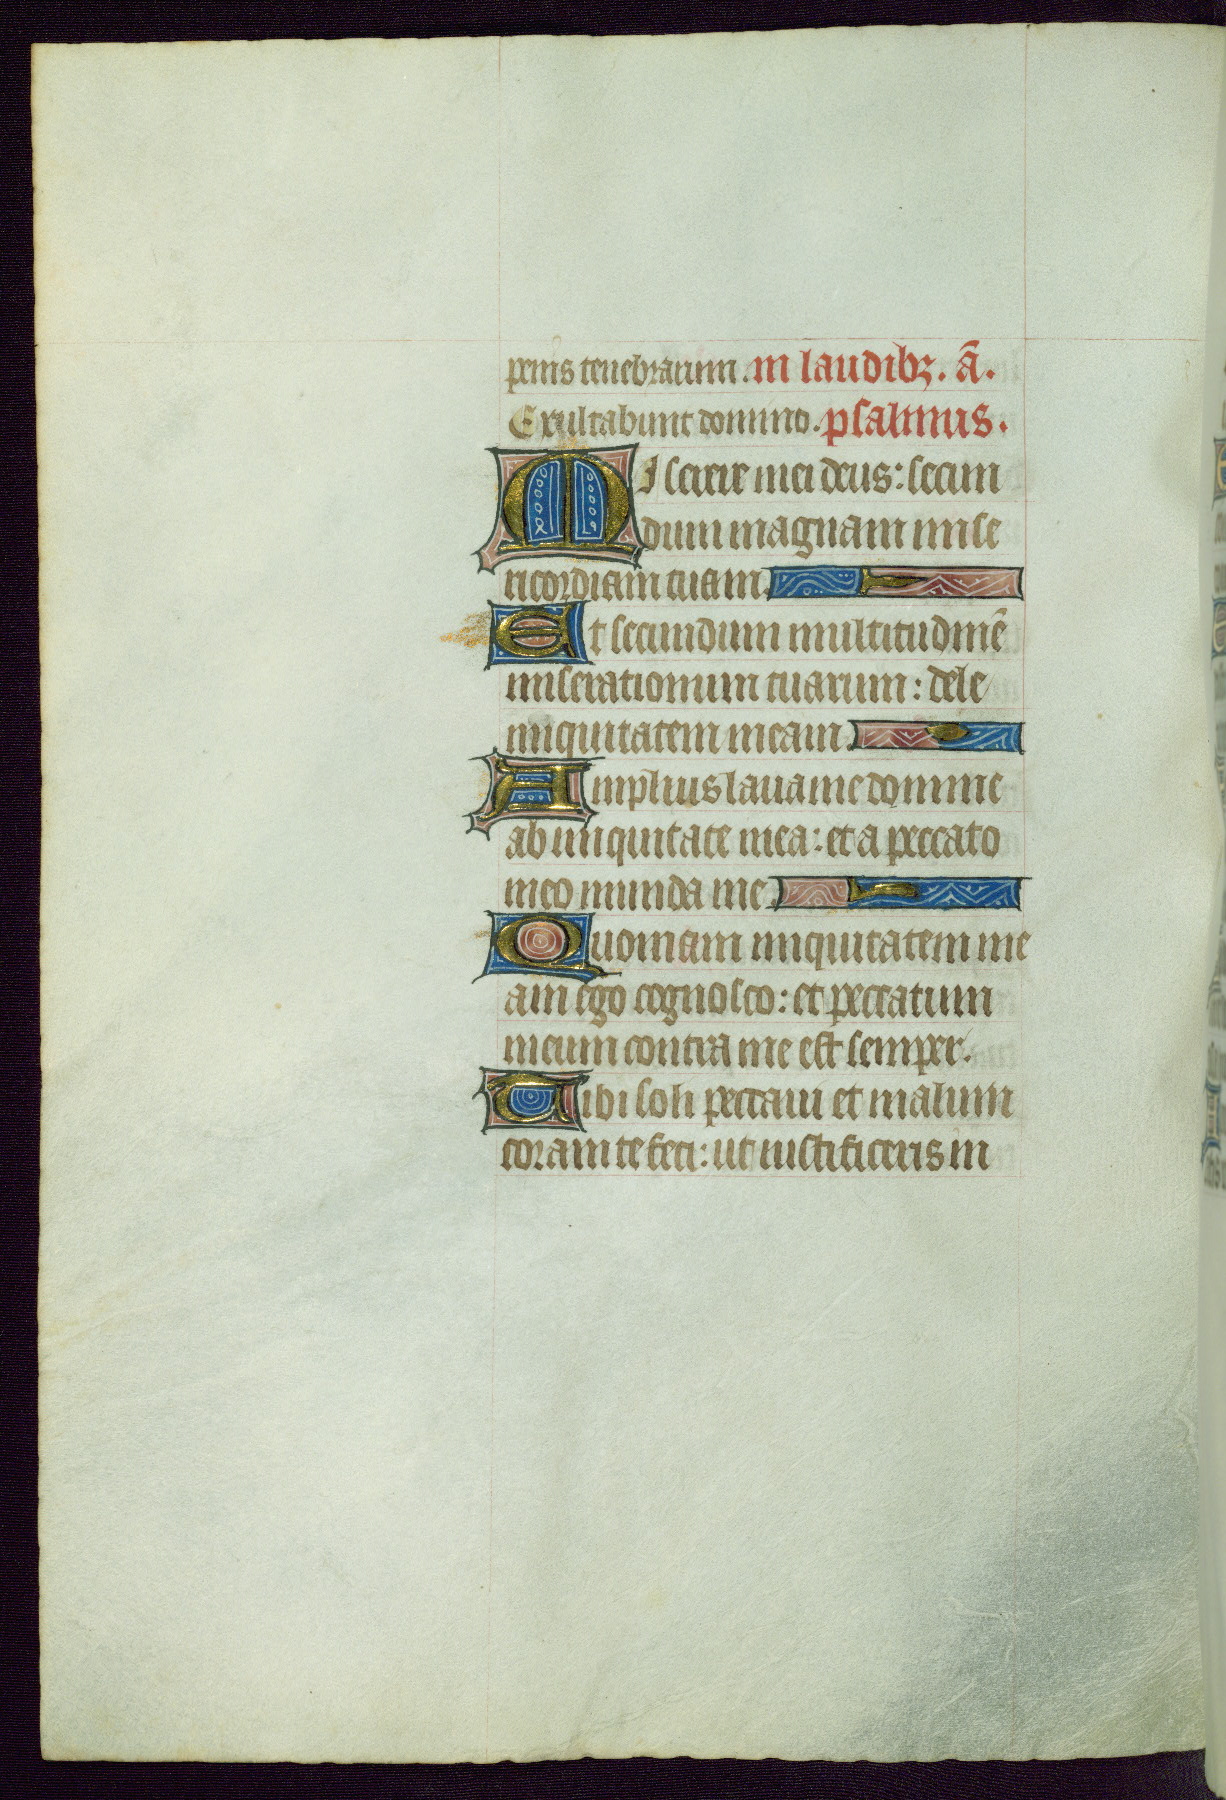 penis tenebrarum. in laudibꝫ. ā.
Exultabunt domino. psalmus.
Miserere mei deus: secun
dum magnam mise
ricordiam tuam.
Et secundum multitudinē
miserationum tuarum: dele
iniquitatem meam.
Amplius laua me domine
ab iniquitate mea: et a peccato
meo munda me.
Quoniam iniquitatem me
am ego cognosco: et peccatum
meum contra me est semper.
Tibi soli peccaui et malum
coram te feci: ut iustificeris in